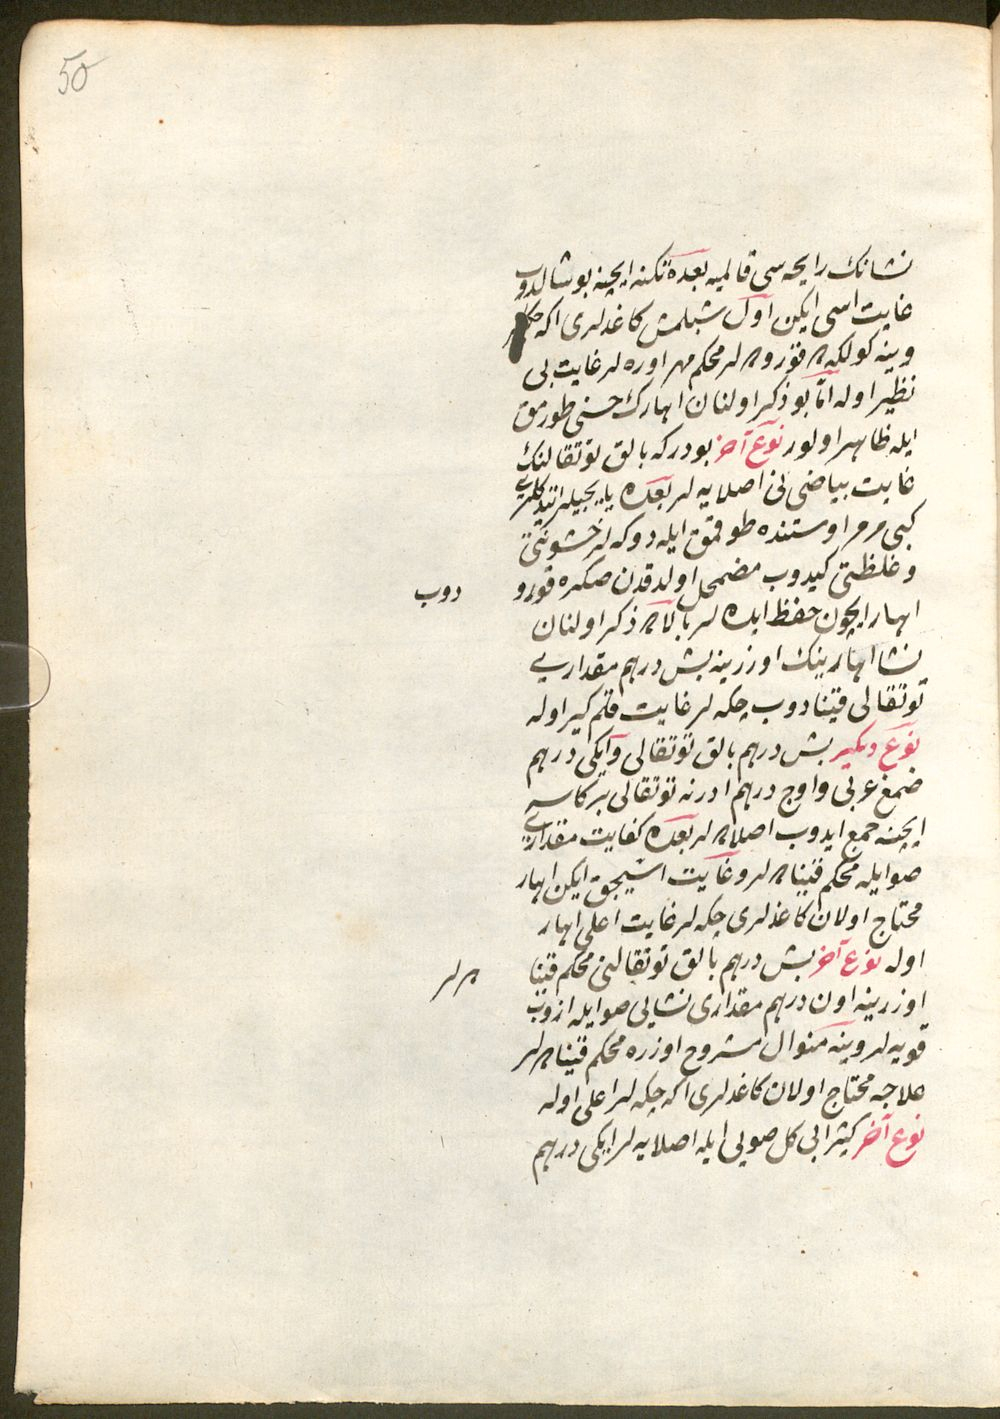 50
نشانك رايحه سى قالميه بعده تكنه ايچنه بوشالدوب
غايت اسى ايكن اول شبلمش كاغدلرى اكه چكه لر
وينه كولكه ده قوروده لر محكم مهر اوره لر غايت بى
نظير اوله اما بو ذكر اولنان اهارك حسنى طورمق
ايله ظاهر اولور نوع آخر بودركه بالق توتقالنك
غايت بياضنى اصلايه لر بعده ياپجيلر ايتدكلرى
كبى مرمر اوستنده طوقمق ايله دوكه لر خشونتى
وغلظتى كيدوب مضمحل اولدقدن صكره قورو
دوب
اهار ايچون حفظ ايده لر بالاده ذكر اولنان
نشا اهارينك اوزرينه بش درهم مقدارى
توتقالى قينادوب چكه لر غايت قلم كير اوله
نوع ديكر بش درهم بالق توتقالى وايكى درهم
ضمغ عربى واوچ درهم ادرنه توتقالى بر كاسه
ايچنه جمع ايدوب اصلاده لر بعده كفايت مقدارى
صو ايله محكم قيناده لر وغايت اسيجق ايكن اهار
محتاج اولان كاغذلرى چكه لر غايت اعلى اهار
اوله نوع آخر بش درهم بالق توتقالنى محكم قينا
ده لر
اوزرينه اون درهم مقدارى نشايى صو ايله ازوب
قويه لر وينه منوال مشروح اوزره محكم قيناده لر
علاجه محتاج اولان كاغدلرى اكه چكه لر اعلى اوله
نوع آخر كيثرابى كل صويى ايله اصلايه لر ايكى درهم